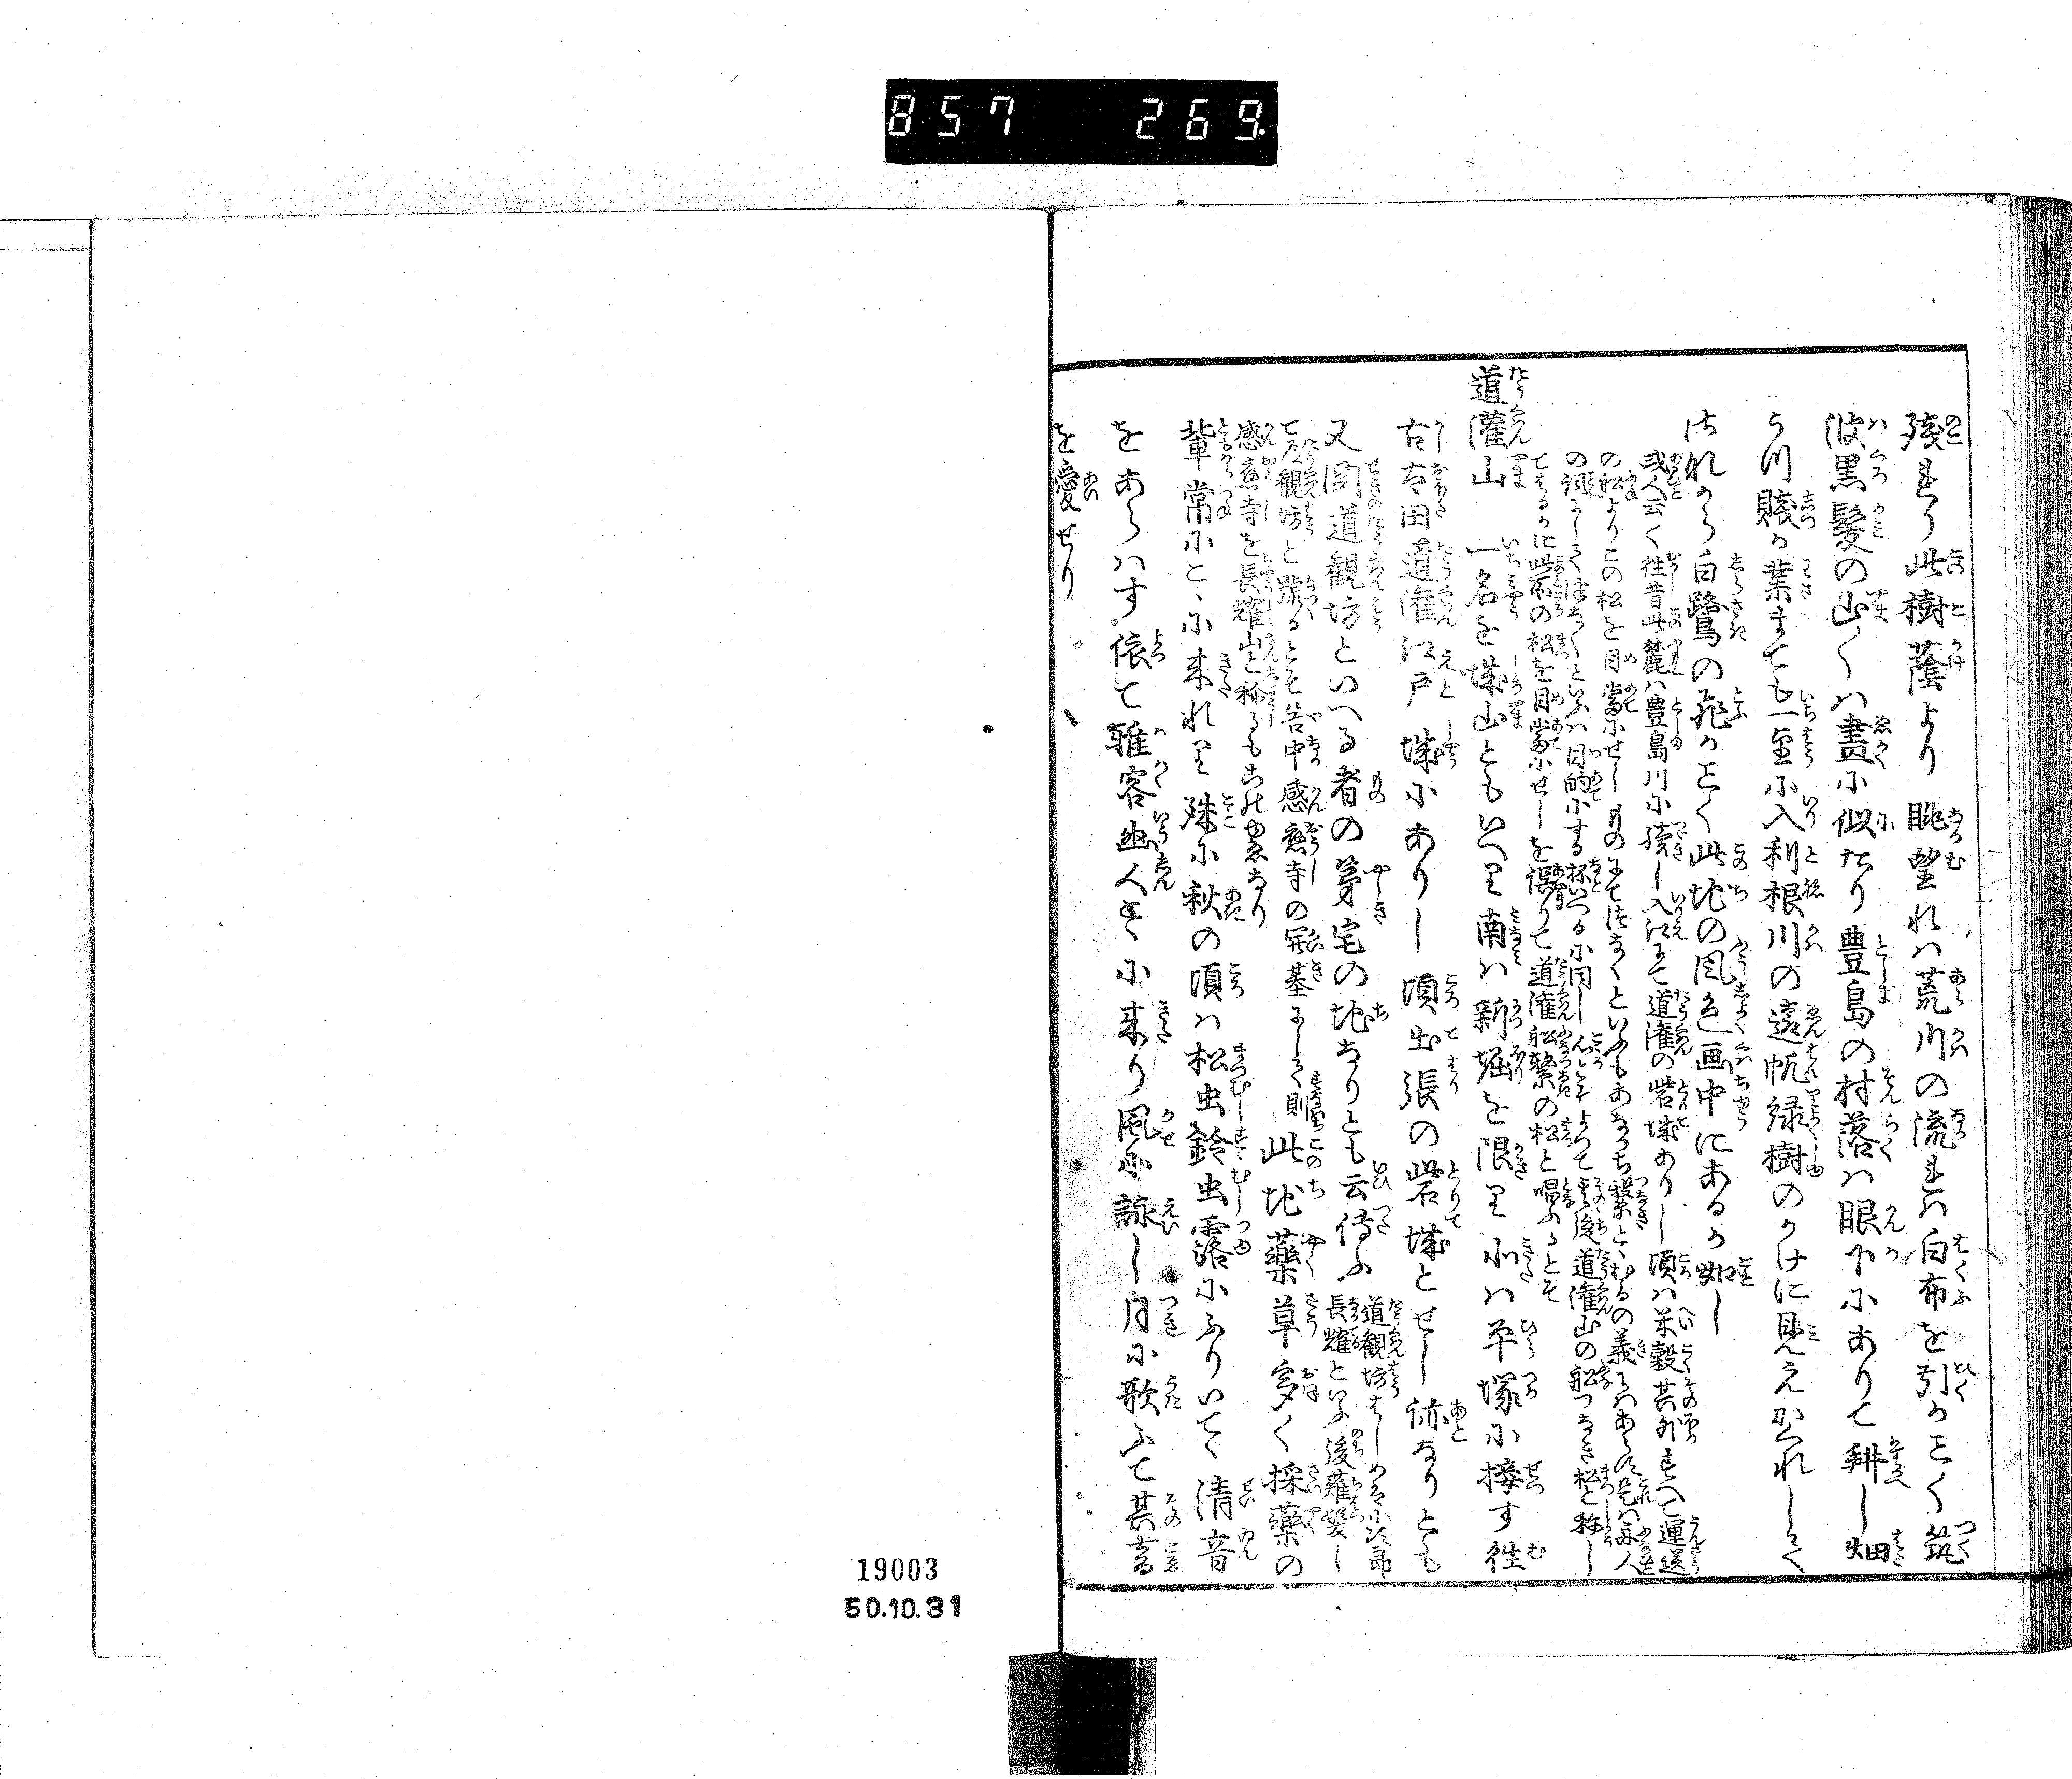 857 269.
残れり此樹蔭より眺望れハ荒川の流れハ白布を引かことく筑
波黒髪の山〳〵ハ畫に似たり豊島の村落ハ眼下にありて耕し畑
うつ賤か業まても一望に入利根川の遠帆緑樹のかけに見えかくれして
さなから白鷺の飛かことく此地の風色画中にあるか如し
或人云く往昔此麓ハ豊島川に續し入江にて道灌の砦城ありし頃ハ米穀其外すへて運送
の船よりこの松を目當にせしものにてつなくといふもあなかち繋とむるの義にハあらす是ハ舟人
の詞にしてつなくといふハ目的にする抔いへるに同し心とそよつて其後道灌山の船つなき松と称し
てはるかに此所の松を目當にせしを誤りて道灌船繋の松と唱ふるとそ
道灌山 一名を城山ともいへり南ハ新堀を限り北ハ平塚に接す往
古太田道灌江戸城にありし頃出張の砦城とせし跡なりとも
又関道観坊といへる者の第宅の地なりとも云傳ふ
道観坊はしめ名小次郎
長耀といふ後薙髪し
て道観坊と號るとそ谷中感應寺の開基にして則
感應寺を長耀山と称るも其故由縁なり
此地藥草多く採藥の
輩常にこゝに来れり殊に秋の頃ハ松虫鈴虫露にふりいてゝ清音
をあらハす依て雅客幽人こゝに来り風に詠し月に歌ふて其音
を愛せり
19003
50.10.31